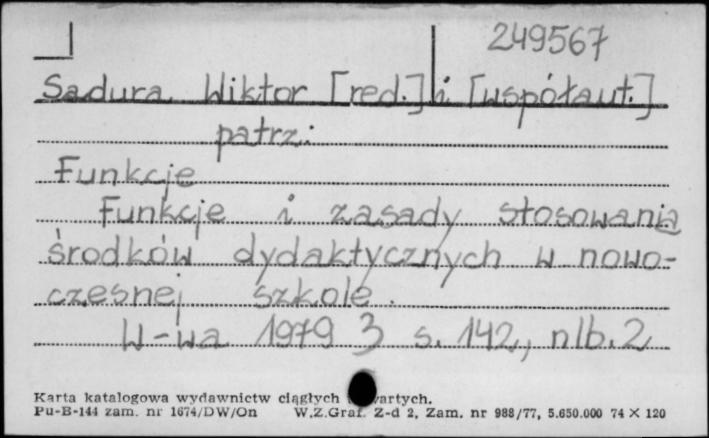 249567
Sadura Wiktor [red.] i [współaut.]
patrz:
Funkcje
Funkcje i zasady stosowania
środków dydaktycznych w nowo-
czesnej szkole.
W-wa 1979 3 s. 142, nlb. 2
Karta katalogowa wydawnictw ciągłych
Pu-B-144 zam. nr 1674/DW/On W.Z.Graf. Z-d 2, Zam. nr 988/77, 5.650.000 74 X 120